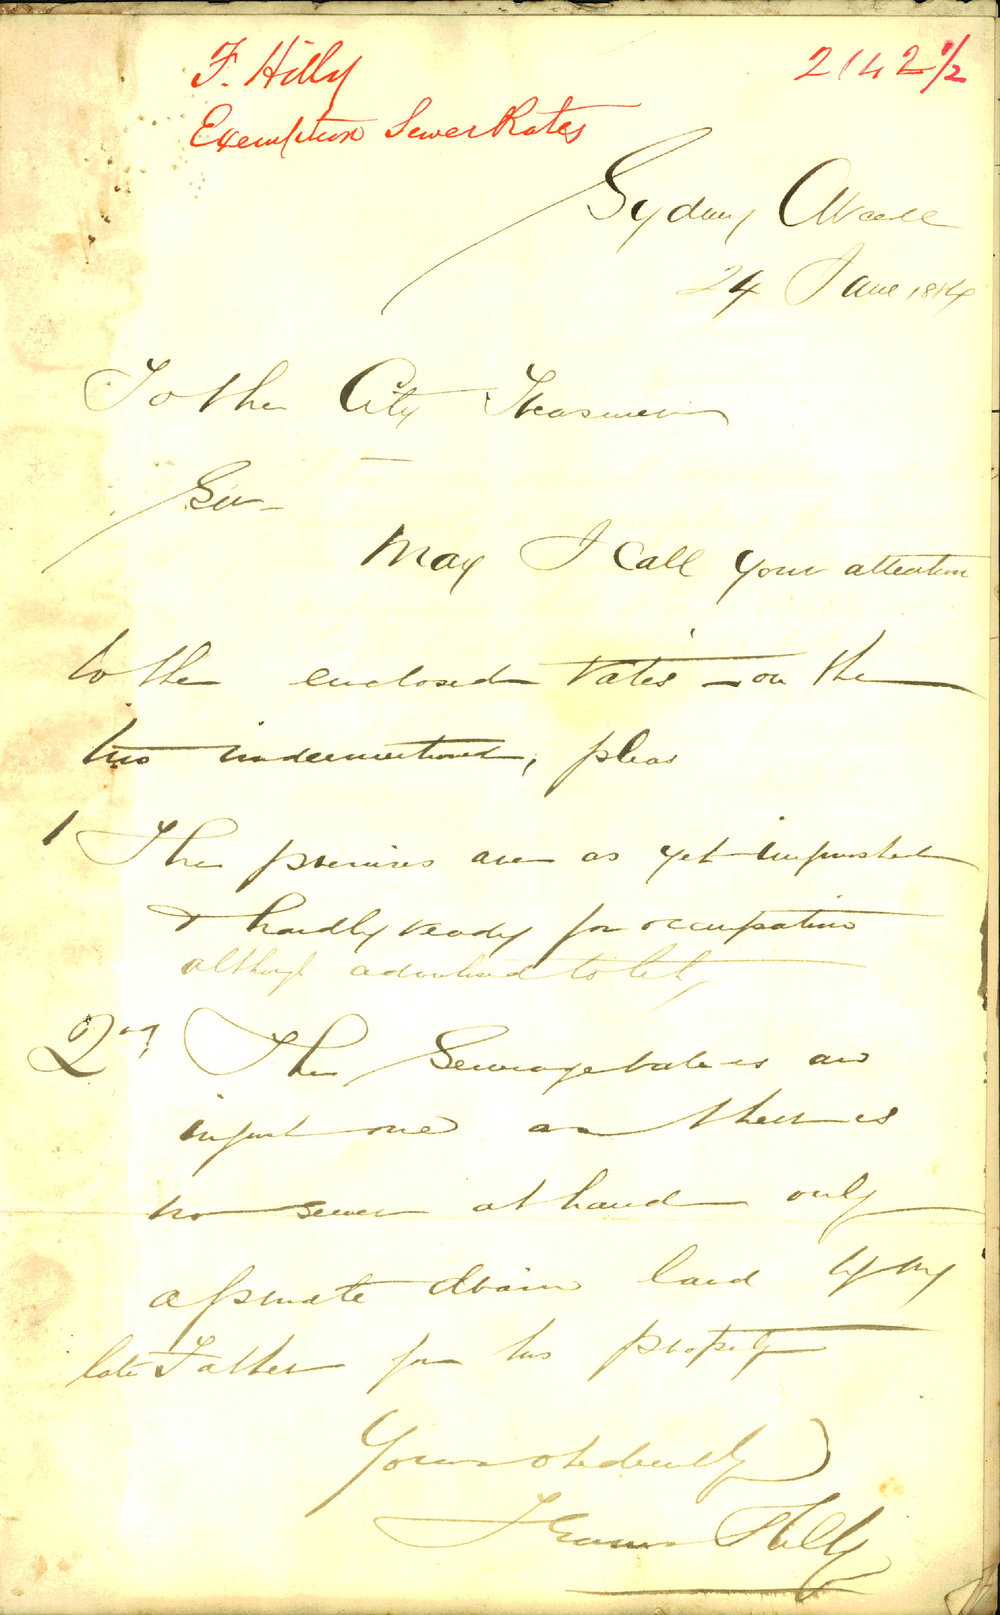 F. Hilly
2142½
Exemption Sewer Rates
Sydney Arcade
24 June 1884
To the City Treasurer
Sir
May I call your attention
to the enclosed rates on the
two undermentioned, pleas
1 The premises are as yet unfinished
& hardly ready for occupation
although advertised to let
2nd The Sewerage rate is an
unjust one as there is
no sewer at hand only
a private drain laid by my
late Father for his property
Yours obediently
Francis Hilly